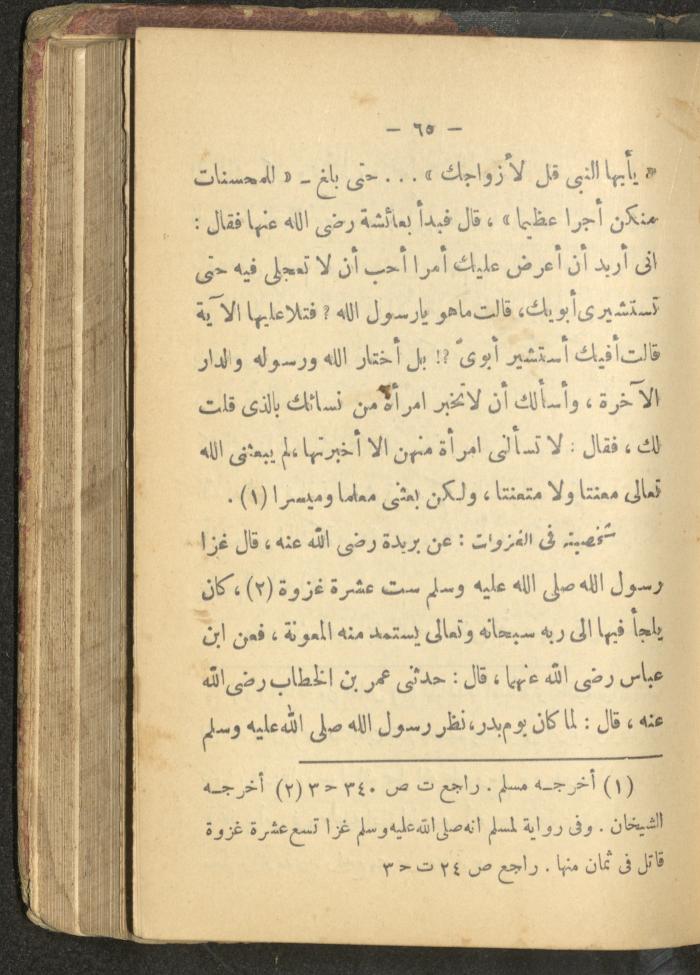 — ٦٥ —
« يأيها النبى قل لأزواجك » . . . حتى بلغ ـ « للمحسنات
منكن أجرا عظيما » ، قال فبدأ بعائشة رضى الله عنها فقال :
انى أريد أن أعرض عليك أمرا أحب أن لا تعجلى فيه حتى
تستشيرى أبويك، قالت ماهو يارسول الله ? فتلاعليها الآية
قالت أفيك أستشير أبوىّ ?! بل أختار الله ورسوله والدار
الآخرة ، وأسألك أن لاتخبر امرأة من نسائك بالذى قلت
لك ، فقال : لا تسألنى امرأة منهن الا أخبرتها ،لم يبعثنى الله
تعالى معنتا ولا متعنتا ، ولكن بعثنى معلما وميسرا (١) .
شخصيته فى الغزوات : عن بريدة رضى الله عنه ، قال غزا
رسول الله صلى الله عليه وسلم ست عشرة غزوة (٢) ، كان
يلجأ فيها الى ربه سبحانه وتعالى يستمد منه المعونة ، فعن ابن
عباس رضى الله عنهما ، قال : حدثنى عمر بن الخطاب رضى الله
عنه ، قال : لما كان يوم بدر، نظر رسول الله صلى الله عليه وسلم
(١) أخرجـه مسلم . راجع ت ص ٣٤٠ حـ ٣ (٢) أخرجـه
الشيخان . وفى رواية لمسلم انه صلى الله عليه وسلم غزا تسع عشرة غزوة
قاتل فى ثمان منها . راجع ص ٢٤ ت حـ ٣